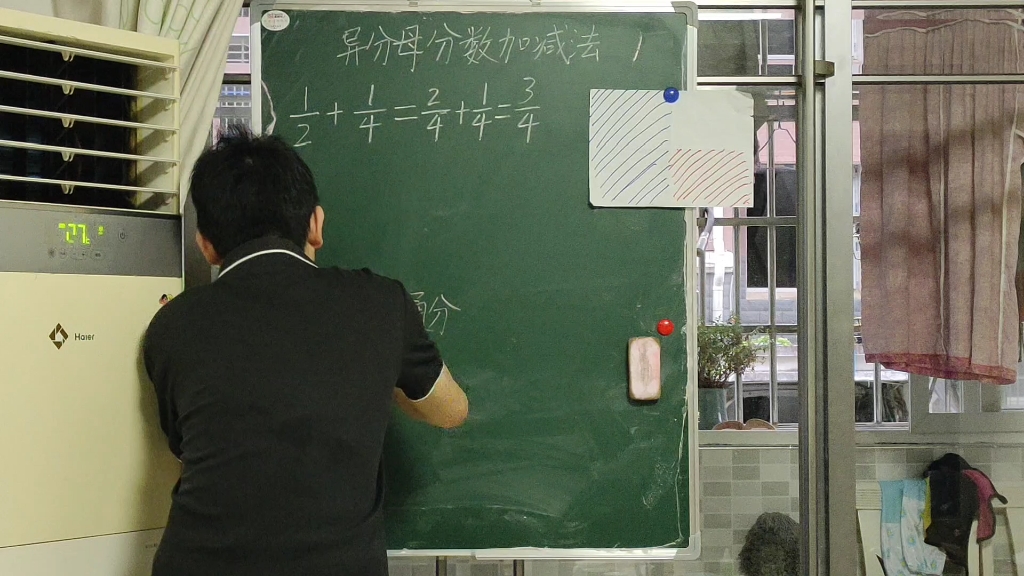 异分母分数加减法
1/2 + 1/4 = 2/4 + 1/4 = 3/4
通分
Haier